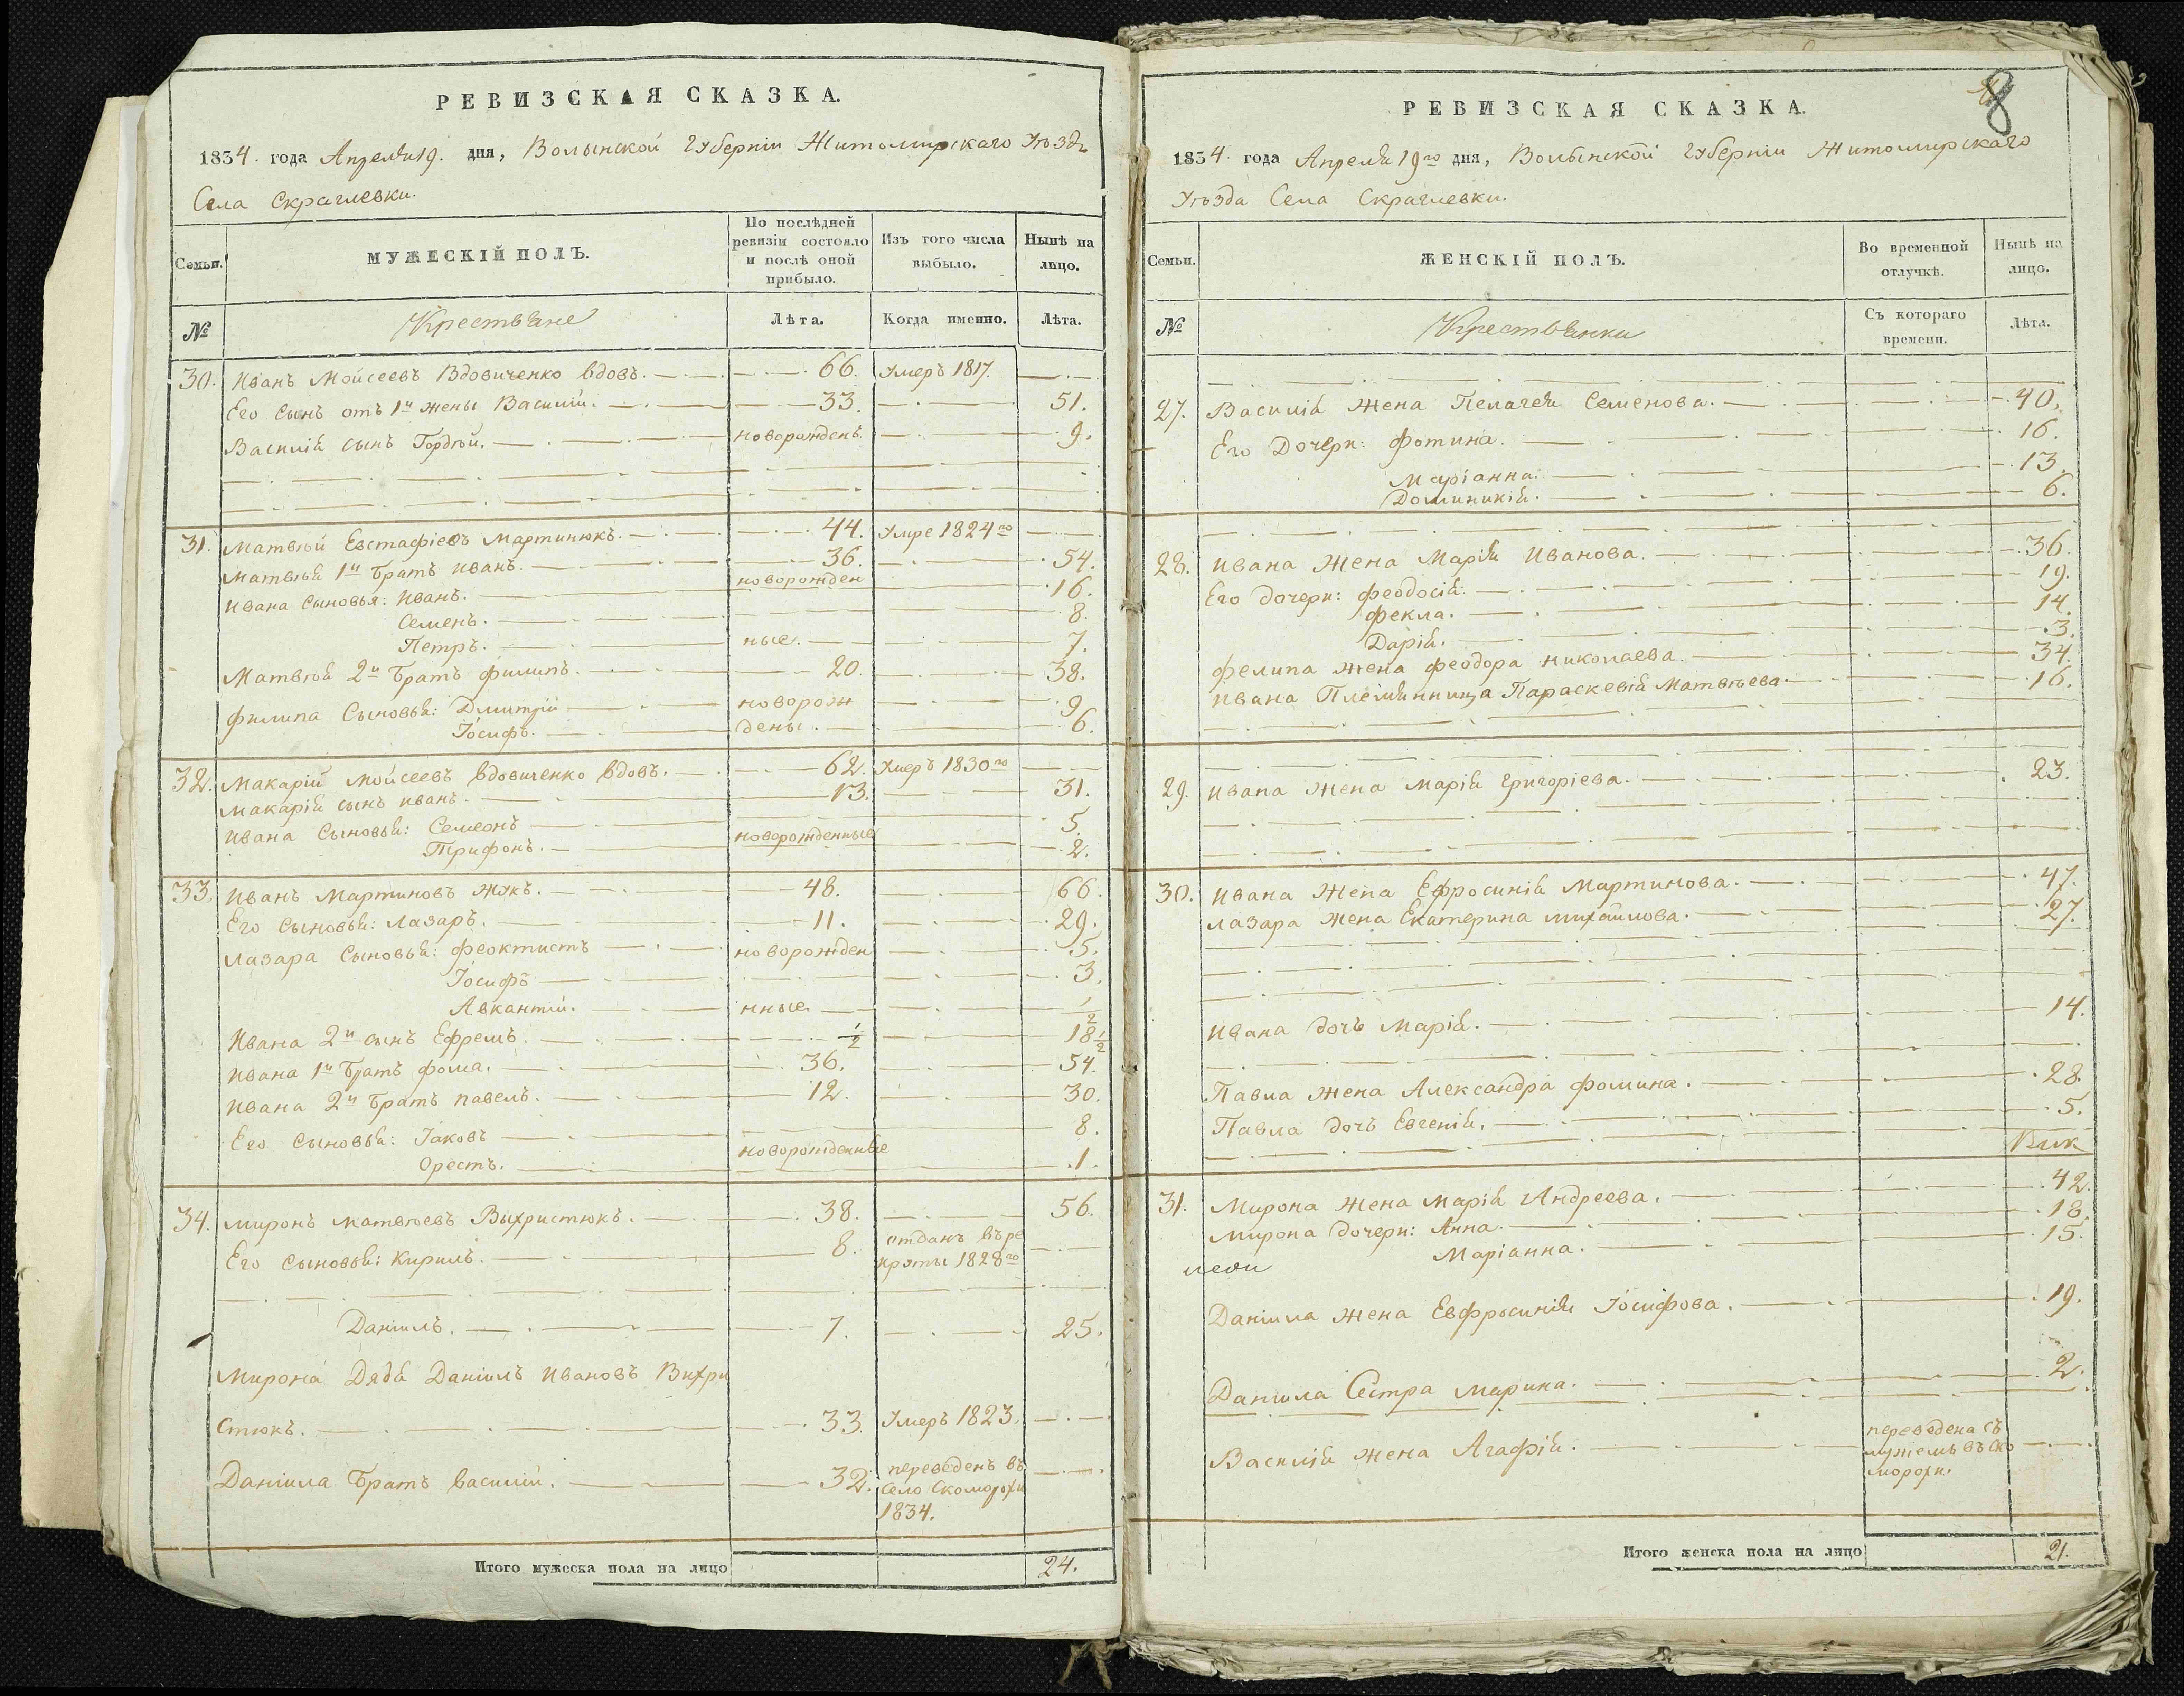 РЕВИЗСКАЯ СКАЗКА.
1834. года Апреля 19. дня, Волынской Губерніи Житомирскаго Уѣзда
Села Скраглевки.
Семьи. МУЖЕСКІЙ ПОЛЪ. По послѣдней ревизіи состояло и послѣ оной прибыло. Изъ того числа выбыло. Нынѣ на лицо.
№ Крестьяне Лѣта. Когда именно. Лѣта.
30. Иванъ Мойсеевъ Вдовиченко вдовъ. 66. Умеръ 1817.
Его Сынъ отъ 1й жены Василій. 33. 51.
Василія сынъ Гордѣй. новорожденъ. 9.
31. Матвѣй Евстафіевъ Мартинюкъ. 44. Умре 1824го
Матвѣя 1й Братъ Иванъ. 36. 54.
Ивана Сыновья: Иванъ. новорожден 16.
Семенъ. 8.
Петръ. ные. 7.
Матвѣя 2й Братъ Филипъ. 20. 38.
Филипа Сыновья: Дмитрій новорож 9
Іосифъ. дены. 6.
32. Макарій Мойсеевъ вдовиченко вдовъ. 62. Умеръ 1830го
Макарія сынъ Иванъ. 13. 31.
Ивана Сыновья: Семеонъ новорожденные 5.
Трифонъ. 2.
33. Иванъ Мартиновъ Жукъ. 48. 66.
Его Сыновья: Лазаръ. 11. 29.
Лазара Сыновья: Феоктистъ новорожден 5.
Іосифъ 3.
Авкантій. нные. 1/2
Ивана 2й сынъ Ефремъ. 1/2 18 1/2
Ивана 1й Братъ Фома. 36. 54.
Ивана 2й Братъ Павелъ. 12. 30.
Его Сыновья: Іаковъ 8.
Орестъ. новорожденные 1.
34. Миронъ Матвѣевъ Выхристюкъ. 38. 56.
Его Сыновья: Кирилъ. 8. отданъ въ ре
круты 1828го
Даніилъ. 7. 25.
Мирона Дядя Даніилъ Ивановъ Вихри
стюкъ. 33. Умеръ 1823.
Даніила Братъ Василій. 32. переведенъ въ
Село Скоморохи
1834.
Итого мужеска пола на лицо 24.
8
РЕВИЗСКАЯ СКАЗКА.
1834. года Апреля 19го дня, Волынской Губерніи Житомирскаго
Уѣзда Села Скраглевки.
Семьи. ЖЕНСКІЙ ПОЛЪ. Во временной отлучкѣ. Нынѣ на лицо.
№ Крестьянки Съ котораго времени. Лѣта.
27. Василія Жена Пелагея Семенова. 40.
Его Дочери: Фотина. 16.
Маріанна. 13.
Доминикія. 6.
28. Ивана Жена Марія Иванова. 36.
Его дочери: Феодосія. 19.
Фекла. 14.
Дарія. 3.
Фелипа Жена Феодора Николаева. 34.
Ивана Племянница Параскевія Матвѣева 16.
29. Ивана Жена Марія Григоріева. 23.
30. Ивана Жена Ефросинія Мартинова. 47.
Лазара Жена Екатерина Михайлова. 27.
Ивана дочь Марія. 14.
Павла Жена Александра Фомина. 28.
Павла дочъ Евгенія. 5.
31. Мирона Жена Марія Андреева. 42.
Мирона дочери: Анна. 18.
Маріанна. 15.
Даніила Жена Евфросинія Іосифова. 19.
Даніила Сестра Марина. 2.
Василія Жена Агафія. переведена съ
мужемъ въ Ско
морохи.
Итого женска пола на лицо 21.